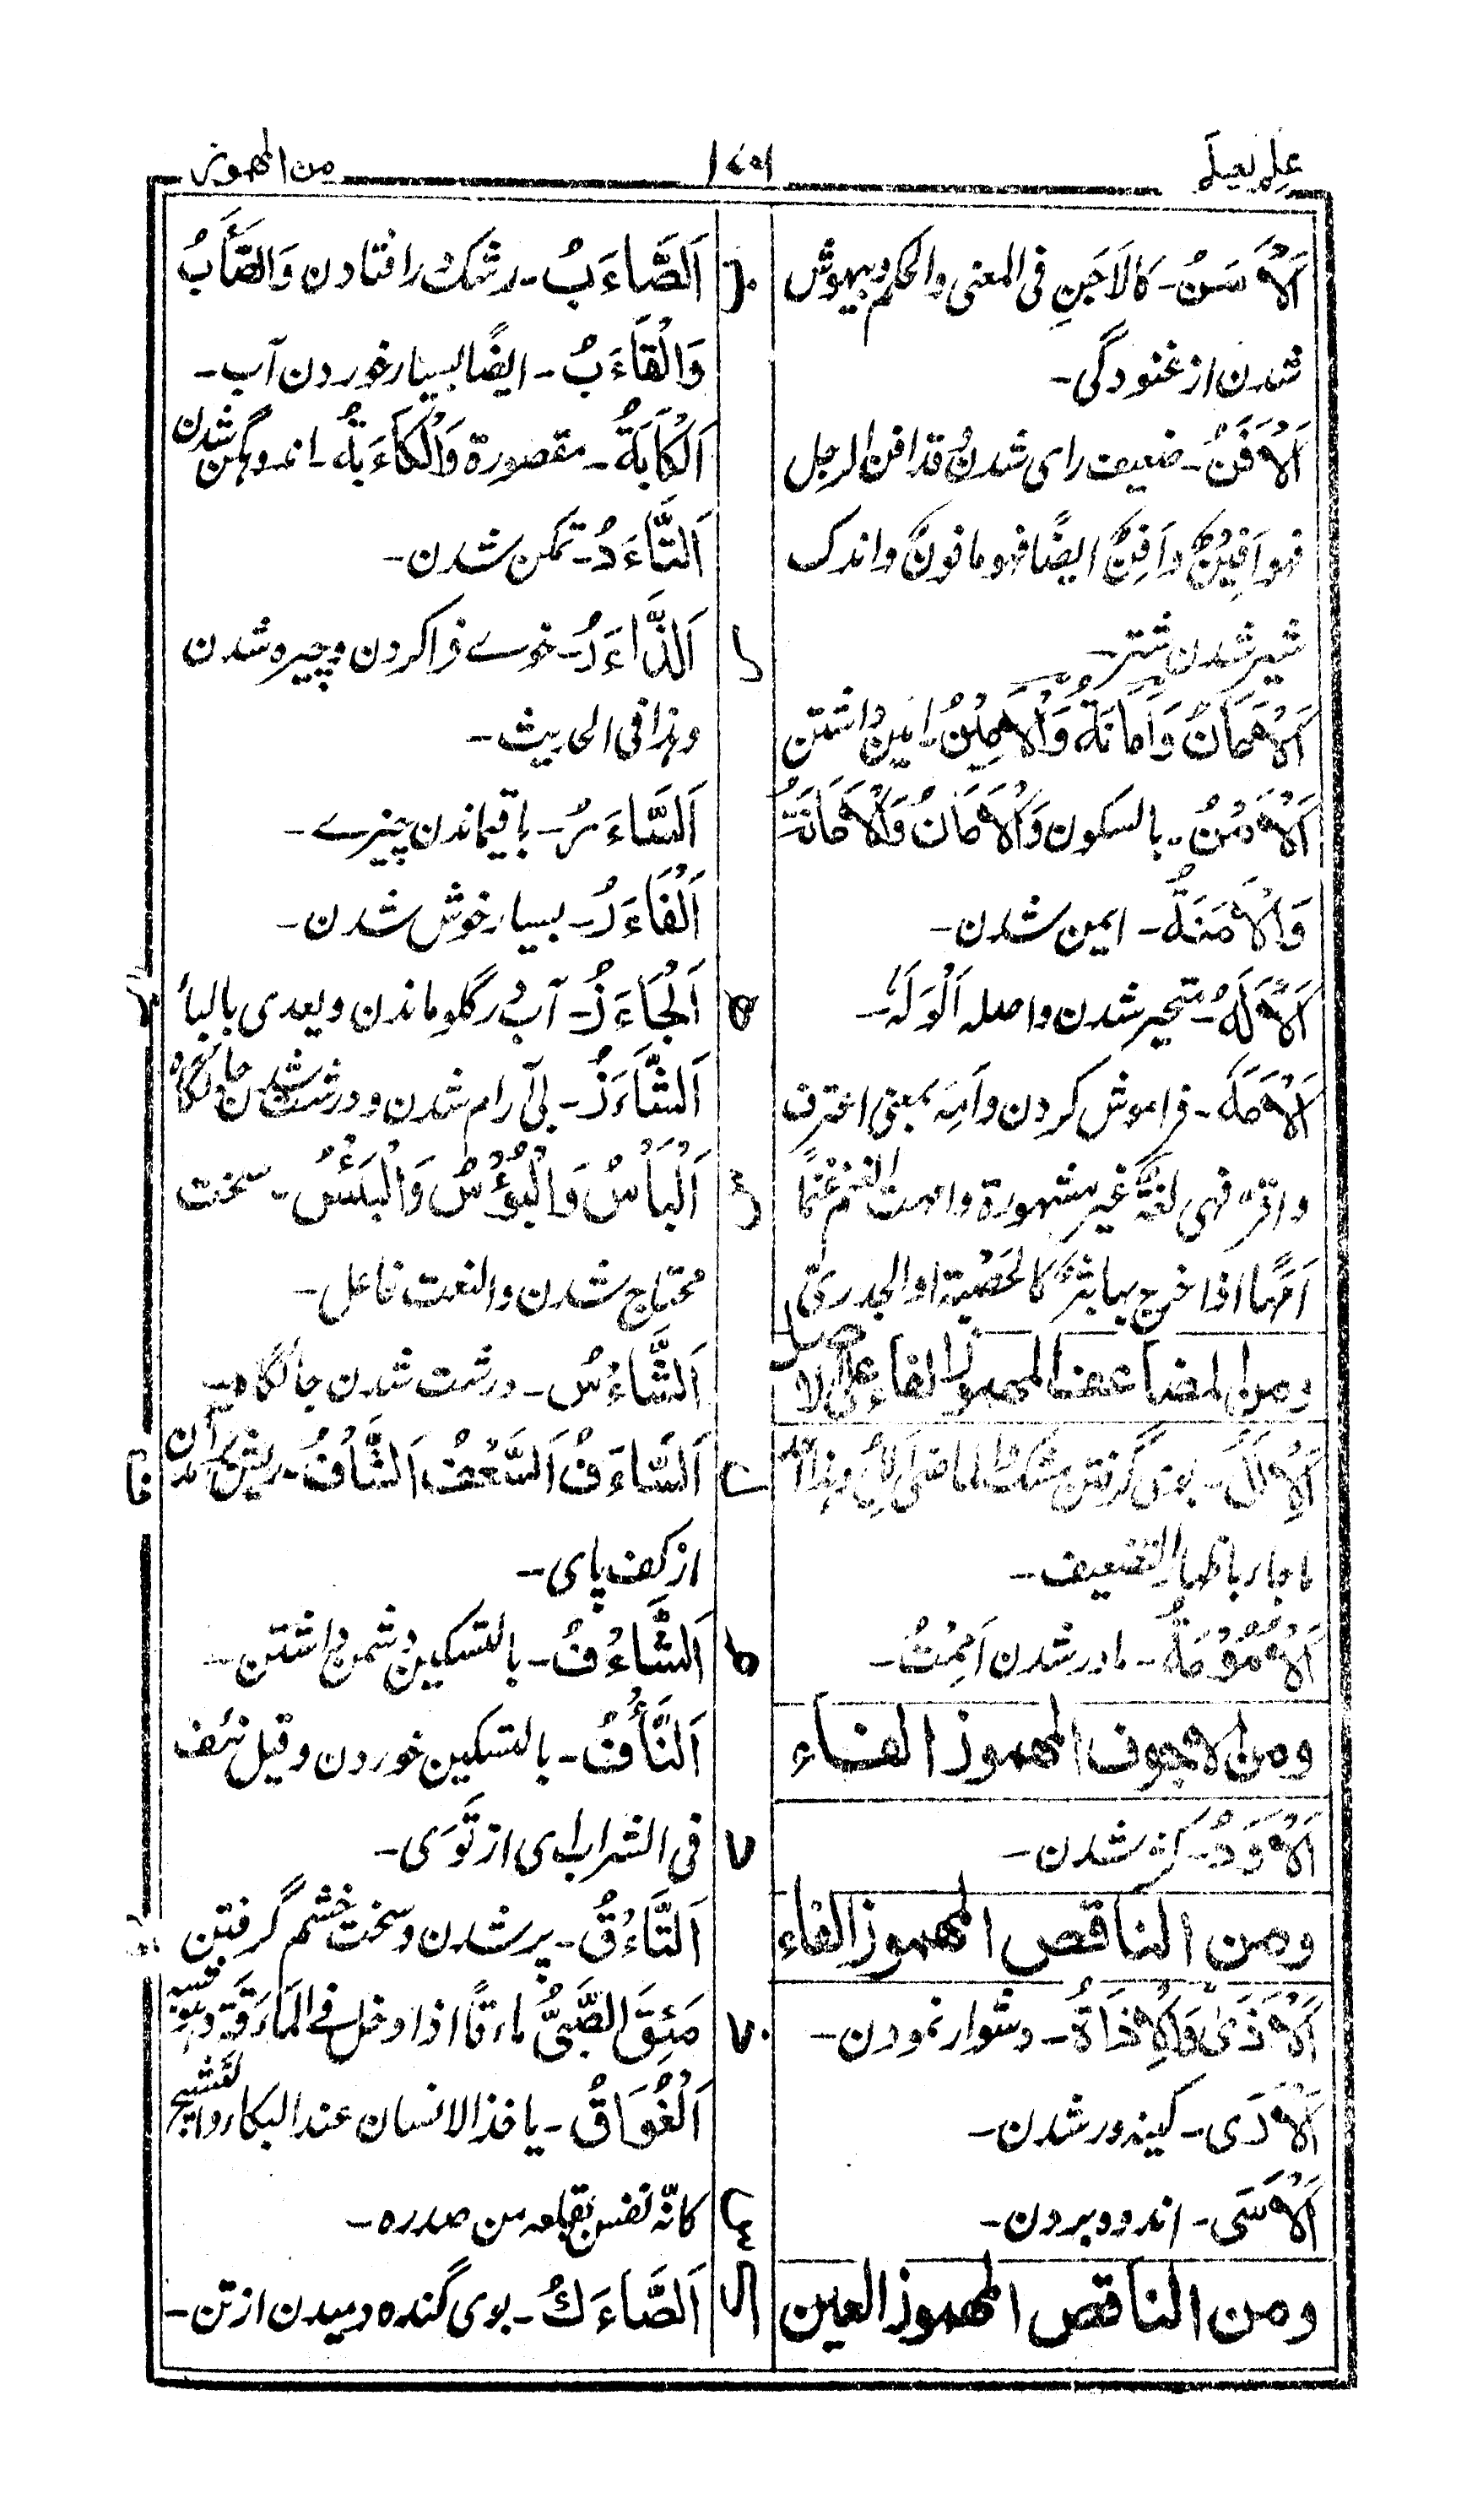 علم یعلم
من المهموز
اَلْاَسَنُ۔ کالاَجَنِ فی المعنی والحکم و بیهوش
شدن از غنودگی۔
اَلْاَفَنُ۔ ضعیف رای شدن قد افن الرجل
فهو اَفِینٌ و اَفِنٌ ایضًا فهو مافونٌ و اندک
شیر شدن شتر۔
اَلْاَمَانُ وَاَمَانَةُ وَالْاَمِیْنُ۔ امین داشتن
اَلْاَمْنُ۔ بالسکون وَالْاَمَانُ وَالْاَمَانَةُ
وَالْاَمَنَةُ۔ ایمن شدن۔
اَلْاَلَهُ۔ متحیر شدن واصله اَلْوَلَهُ۔
اَلْاَمَهُ۔ فراموش کردن و اَمِهَ بمعنی اعترف
و اقر فهی لغةٌ غیر مشهورة و امهت الغنم غنمًا
اَمَهًا اذا خرج بها بثرٌ کالحصبة او الجدری
ومن المضاعف المهموز الفاء علی الاصل
اَلْاَلَلُ۔ بوی گرفتن مشک الماضی اَلِلَ و هذا
ما جاء باظهار التضعیف۔
اَلْاُمُوْمَةُ۔ مادر شدن اَمِمْتُ۔
ومن الاجوف المهموز الفاء
اَلْاَوَدُ۔ کژ شدن۔
ومن الناقص المهموز الفاء
اَلْاَذٰی وَالْاِذَاةُ۔ دشوار نمودن۔
اَلْاَرَی۔ کینه ور شدن۔
اَلْاَسَی۔ اندوه بردن۔
ومن الناقص المهموز العین
اَلصَّاءَبُ۔ رشک را فتادن وَالصَّأَبُ
وَالْقَاءَبُ۔ ایضًا بسیار خوردن آب۔
اَلْکَاَبَةُ۔ مقصورة وَالْکَاءَبَةُ۔ اندوهگین شدن
اَلتَّاءَدُ۔ تمکن شدن۔
اَلذَّاءَرُ۔ خوے فرا کردن و چیره شدن
و هذا فی الحدیث۔
اَلسَّاءَرُ۔ باقیماندن چیزے۔
اَلْفَاءَرُ۔ بسیار خوش شدن۔
اَلْجَاءَزُ۔ آب در گلو ماندن و یعدی بالباء
اَلشَّاءَزُ۔ بی آرام شدن و درشت شدن جایگاه
اَلْبَأْسُ وَالْبُؤْسُ وَالْبَئَسُ۔ سخت
محتاج شدن والنعت فاعل۔
اَلشَّاءَسُ۔ درشت شدن جایگاه۔
اَلسَّاءَفُ اَلسَّعَفُ اَلشَّأَفُ۔ ریش برآمدن
از کف پای۔
اَلشَّاءُفُ۔ بالتسکین دشمن داشتن۔
اَلنَّأْفُ۔ بالتسکین خوردن و قیل نئف
فی الشراب ای ارتوَی۔
اَلتَّاءَقُ۔ پر شدن و سخت خشم گرفتن
مَئِقَ الصَّبِیُّ ماءقًا اذا دخل فی المارقة و هو شبه
اَلْفُوَاقُ۔ یاخذ الانسان عند البکاء والنشیج
کانّه نفس یقلعه من صدره۔
اَلصَّاءَكُ۔ بوی گنده دمیدن از تن۔